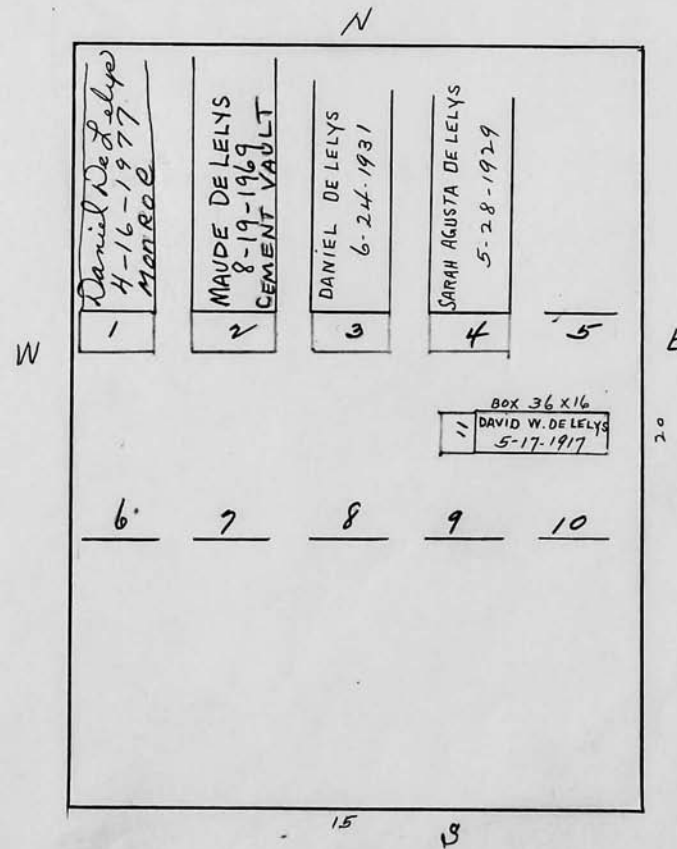 N
Daniel DeLelys
4-16-1977
MONROE
MAUDE DE LELYS
8-19-1969
CEMENT VAULT
DANIEL DE LELYS
6-24-1931
SARAH AGUSTA DE LELYS
5-28-1929
1
2
3
4
5
W
E
BOX 36 X 16
11
DAVID W. DE LELYS
5-17-1917
20
6
7
8
9
10
15
S